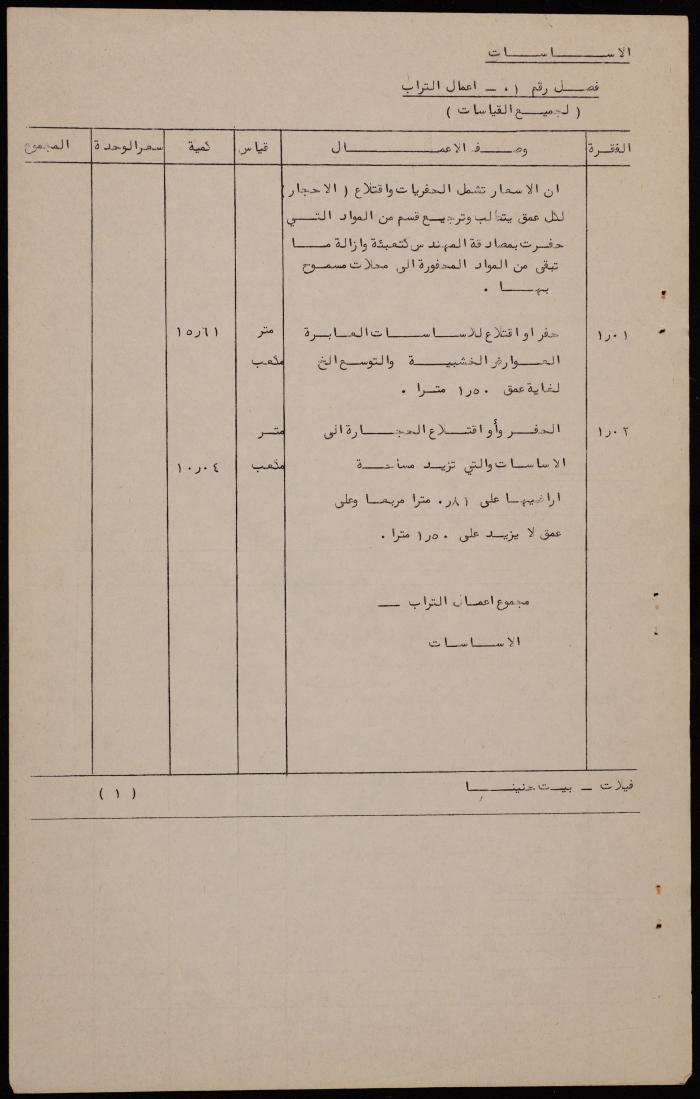 الاساسات
فصل رقم ٠١ - اعمال التراب
( لجميع القياسات )
الفقرة وصف الاعمال قياس كمية سعر الوحدة المجموع
ان الاسعار تشمل الحفريات واقتلاع ( الاحجار )
لكل عمق يتطلب وترجيع قسم من المواد التي
حفرت بمصادقة المهندس كتعبئة وازالة ما
تبقى من المواد المحفورة الى محلات مسموح
بها .
١ر٠١ حفر او اقتلاع للاساسات العابرة متر ١٥ر٦١
العوارض الخشبية والتوسع الخ مكعب
لغاية عمق ١ر٥٠ مترا .
١ر٠٢ الحفر و/أو اقتلاع الحجارة الى متر
الاساسات والتي تزيد مساحة مكعب ١٠ر٠٤
اراضيها على ٠ر٨١ مترا مربعا وعلى
عمق لا يزيد على ١ر٥٠ مترا .
مجموع اعمال التراب -
الاساسات
فيلات - بيت حنينا ( ١ )